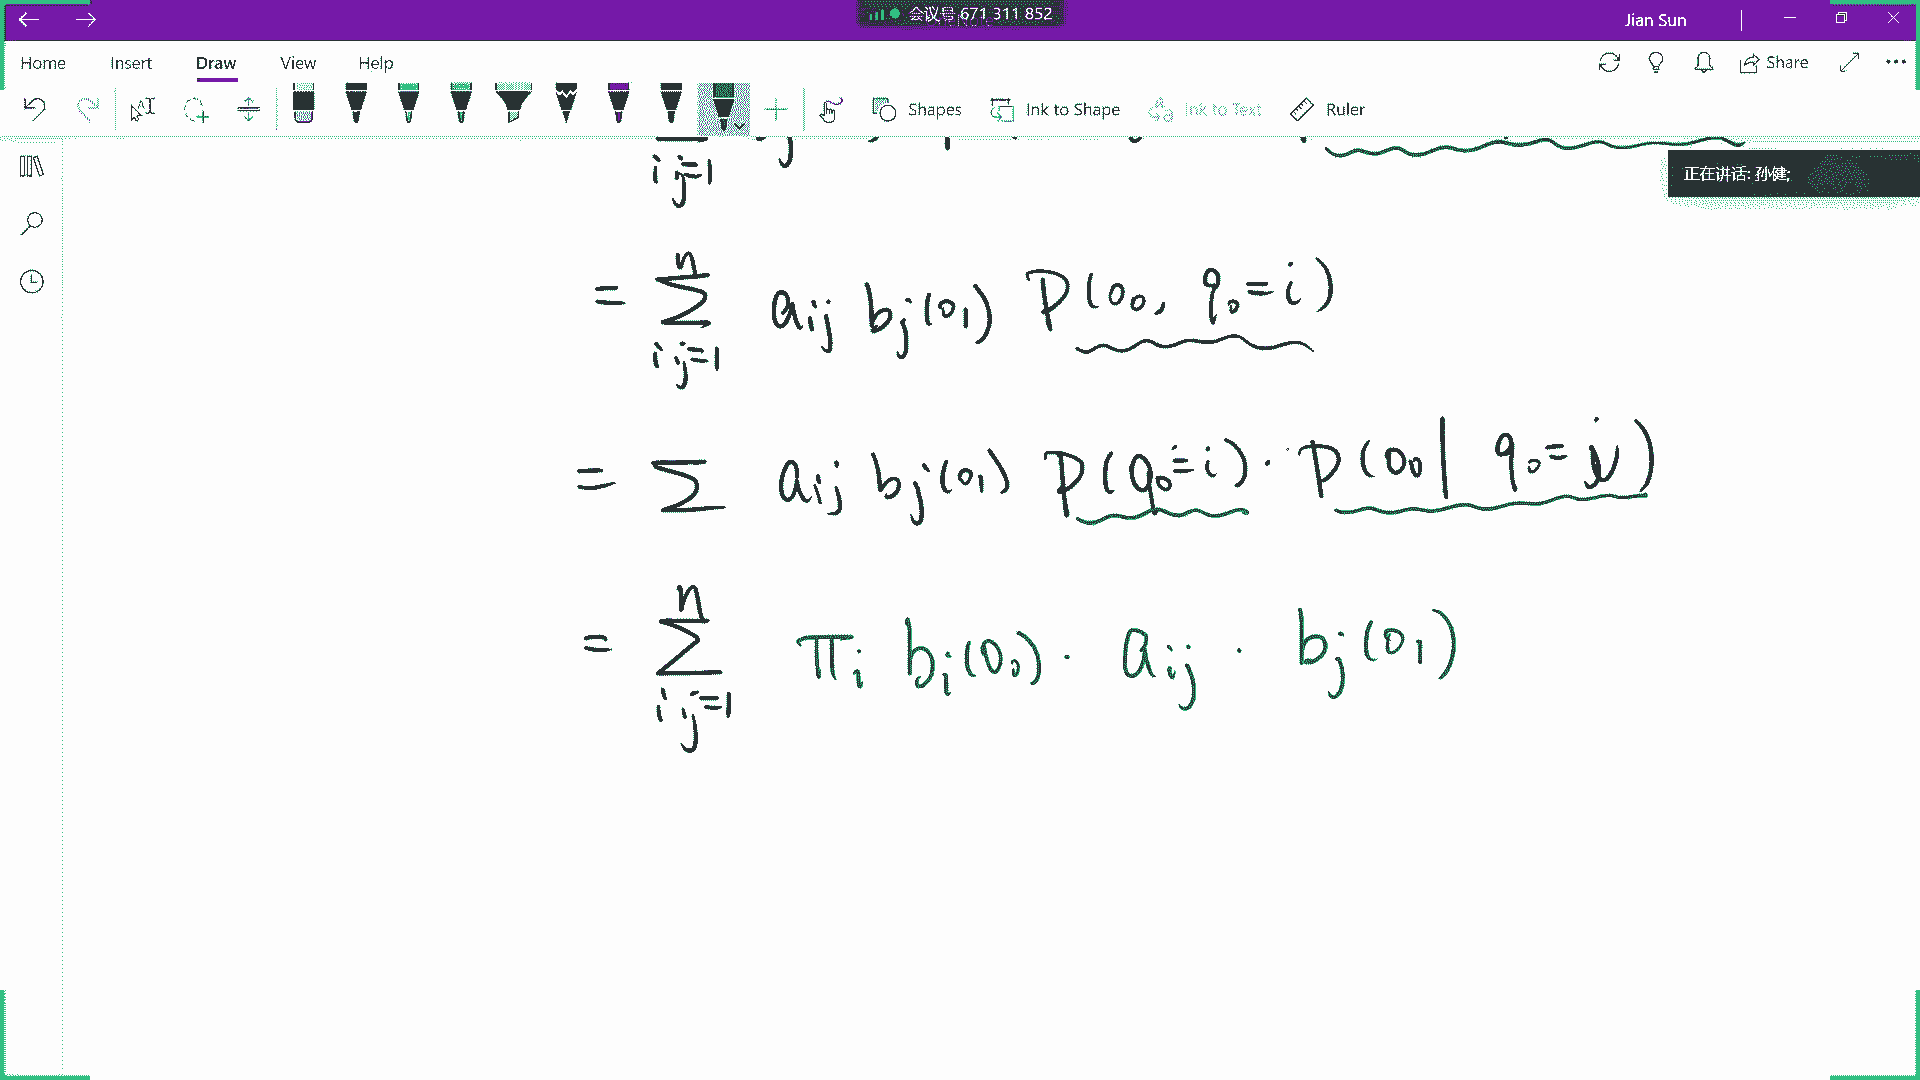 会议号 671 311 852
Jian Sun
Home Insert Draw View Help Share
Shapes Ink to Shape Ink to Text Ruler
正在讲话: 孙健;
i j=1
= ∑_{i j=1}^{n} a_{ij} b_j(o_1) P(o_0, q_0=i)
= ∑ a_{ij} b_j(o_1) P(q_0=i) · P(o_0 | q_0=i)
= ∑_{i j=1}^{n} π_i b_i(o_0) · a_{ij} · b_j(o_1)